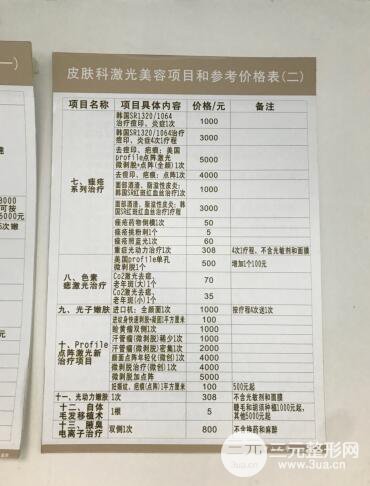 一)
皮肤科激光美容项目和参考价格表(二)
项目名称 项目具体内容 价格/元 备注
韩国SR1320/1064
治疗痘印、炎症1次 1000
韩国SR1320/1064治疗
痘印、炎症4次1疗程 3000
去痘印、疤痕:美国
profile点阵激光
微剥脱+点阵(全颜)1次 5000
去痘印、疤痕:点阵1次 4000
七、痤疮
系列治疗
面部酒渣、脂溢性皮炎:
韩国SR红斑红血丝治疗1次 1000
面部酒渣、脂溢性皮炎:
韩国SR红斑红血丝治疗1疗程 3000
痤疮药物倒模1次 50
痤疮挑粉刺1个 5
痤疮照蓝光1次 60
重症光动力治疗1次 308 4次1疗程,不含光敏剂和面膜
美国profile单孔
微剥脱1个 500 增加1个100元
八、色素
痣激光治疗
Co2激光去痣、
老年斑(大)1个 70
Co2激光去痣、
老年斑(小)1个 35
九、光子嫩肤 进口机:全颜面1次 1000 按疗程4次送1次
十、Profile
点阵激光新
治疗项目
100
睑黄瘤双侧1次 1000
汗管瘤(微剥脱)稀少1次 1000
汗管瘤(微剥脱)密集1次 2000
颜面点阵年轻化(微创)1次 4000
微剥脱治疗(微创)1次 4000
微剥脱加点阵 5000
妊娠纹、疤痕(点阵)1平方厘米 100 500元起
十一、光动力嫩肤 1次 308 不含光敏剂和面膜
十二、自体
毛发移植术 1根 5 睫毛和胡须种植1000元起,
其他5000元起
十三、腋臭
电离子治疗 双侧1次 800 不含换药和麻醉
8000
可按
5000元
三元整形网
www.3ua.cn